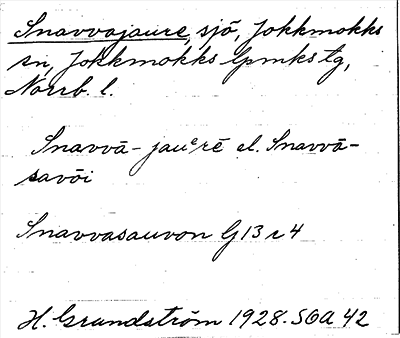 Snavvajaure, sjö, Jokkmokks
sn, Jokkmokks lpmks tg,
Norrb. l.
Snavvā-jauᵉrē el. Snavvā-
savōi
Snavvasauvon G13 r 4
H. Grundström 1928. SOA 42